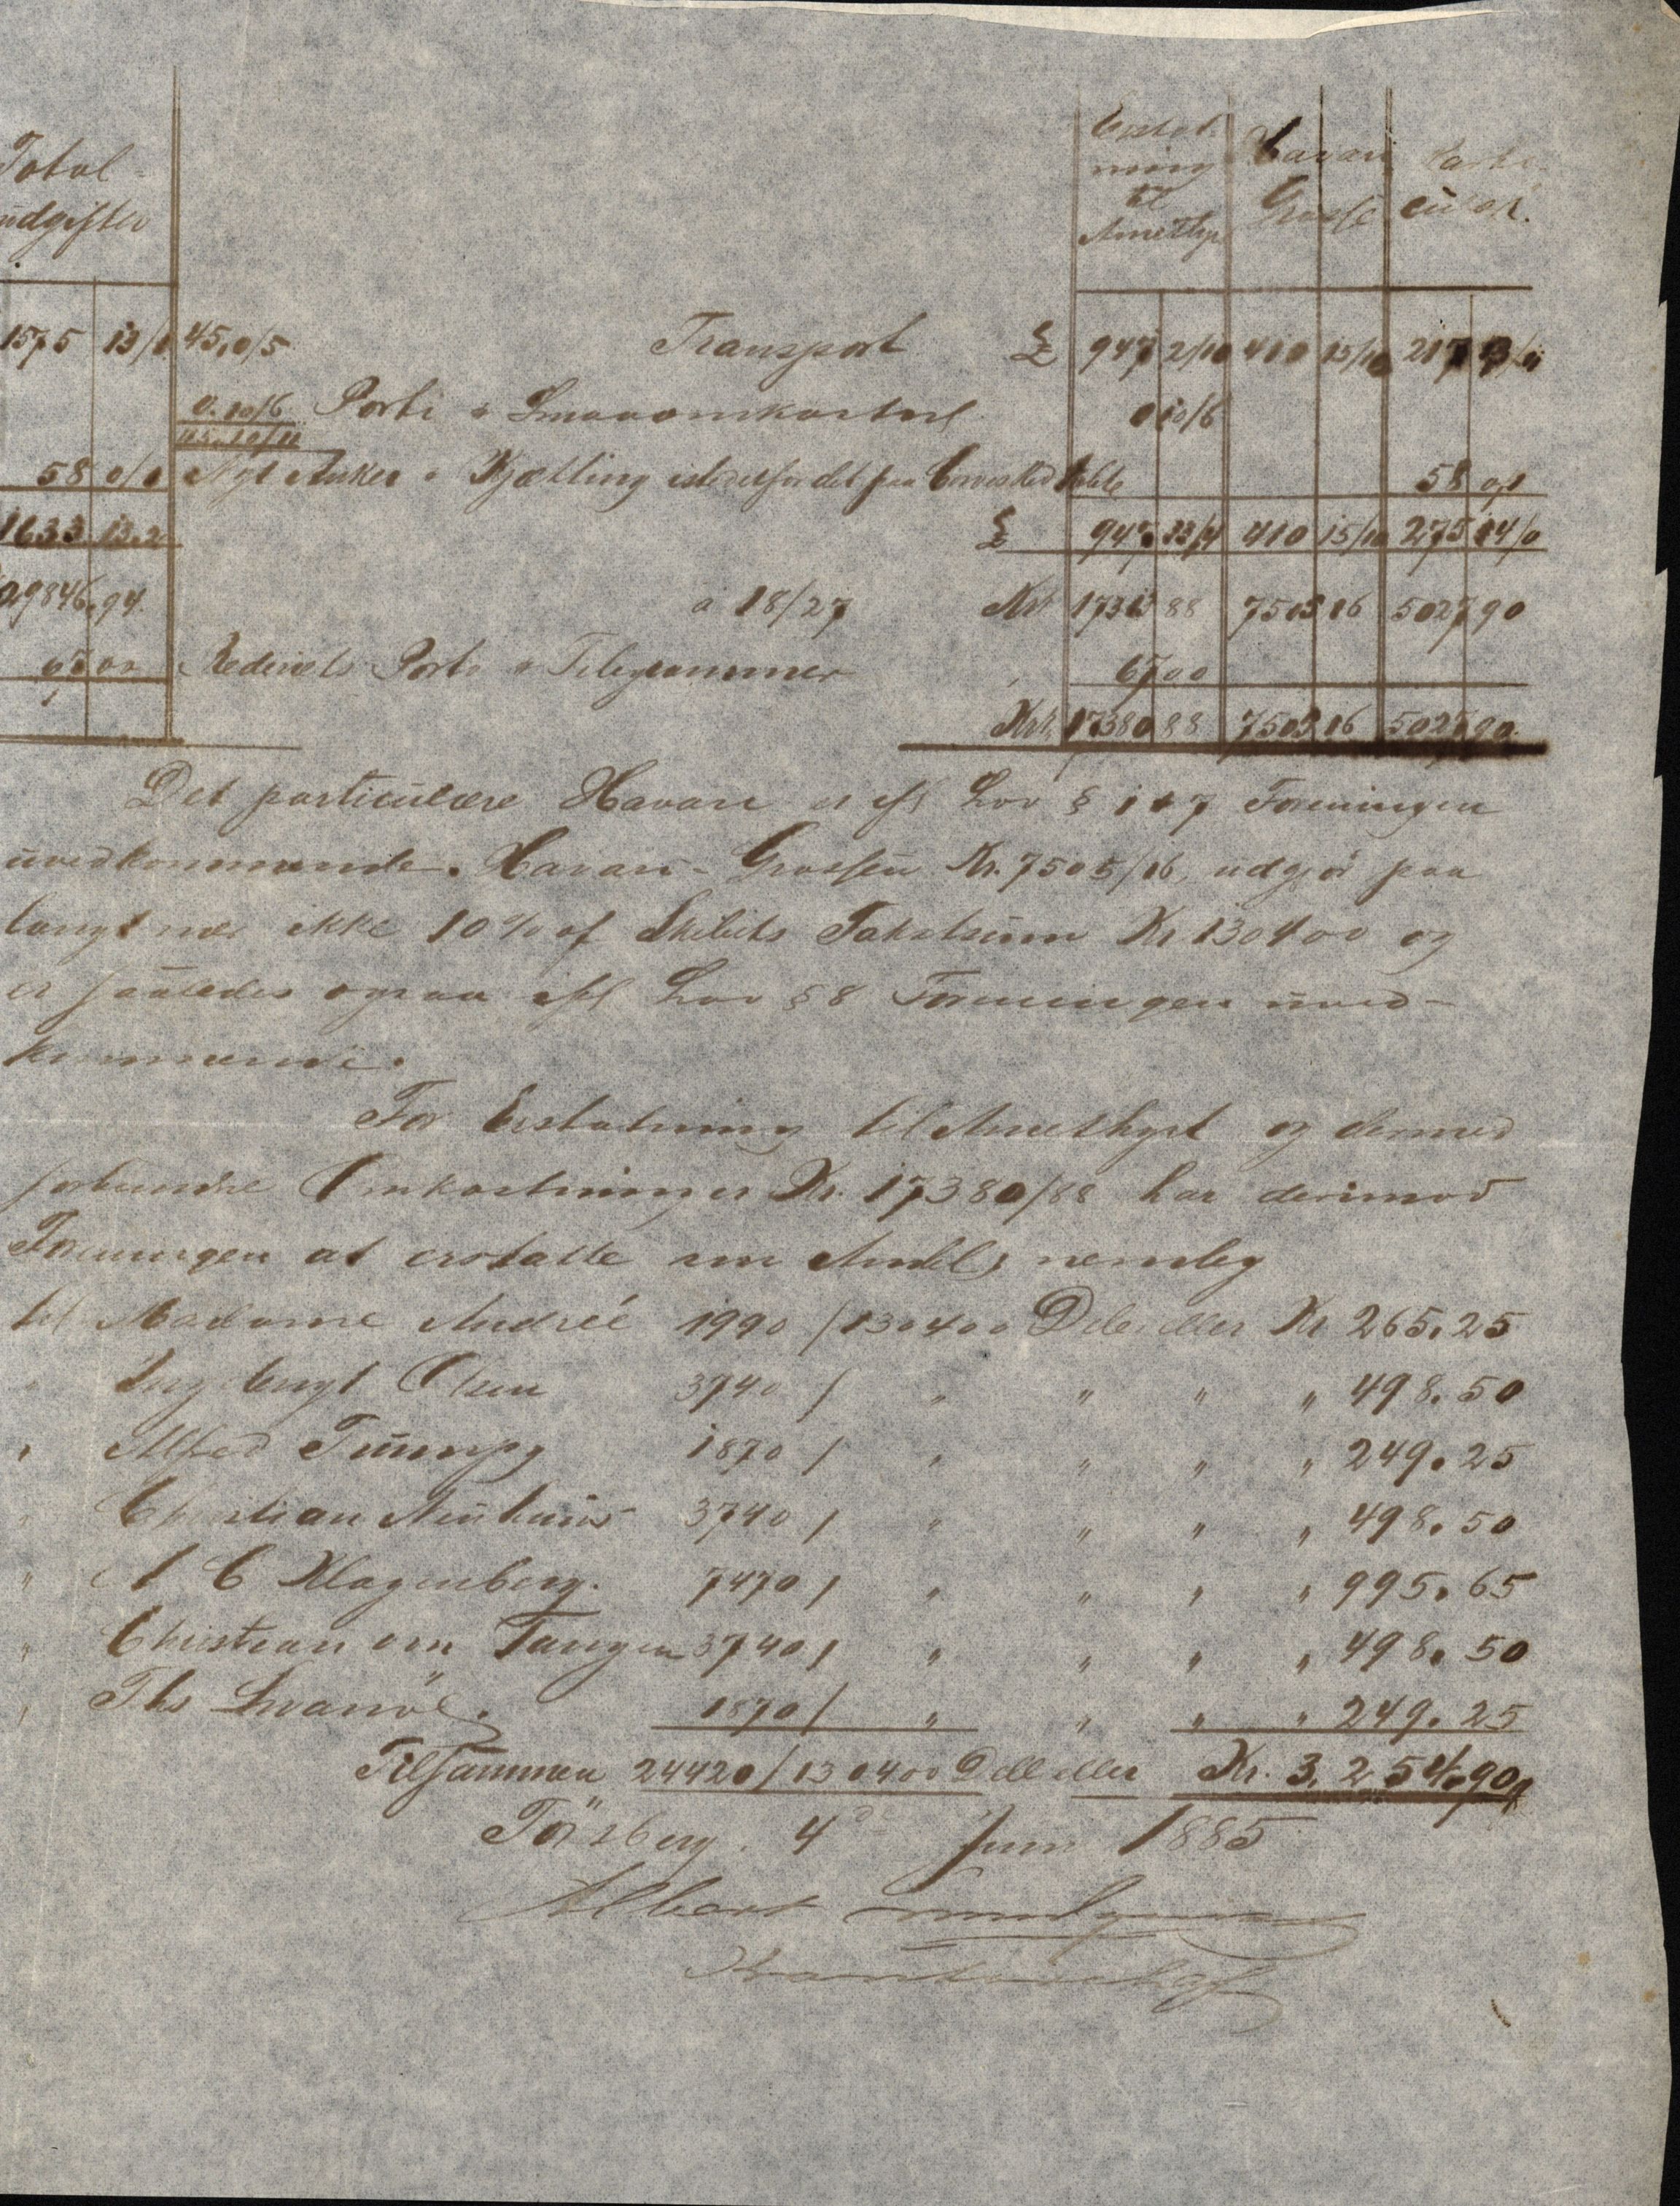 Total
udgifter
Erstat
ning
til
Amethyst
Havari
Grosse
Parti
culær.
1575 13/ 45,0/5 Transport £ 947 2/10 410 15/10 217
0.10/6 Porti & Smaaomkostnl 0 10/6
45.10/11
58 0/0 Nyt Anker & Kjætting istedetfor det paa 58 0/0
1633.13.2 £ 947. 13/4 410 15/10 275 14/0
29846.94. a 18/27 Kr 17313 88 7505 16 5027 90
67 00 Rederiets Porto & Telegrammer 67 00
Kr. 17380 88 7505 16 5027 90.
Det particulære Havari er ifl Lov § 1 & 7 Foreningen
uvedkommende. Havari-Grossen Kr. 7505/16, udgjør paa
langt nær ikke 10% af Skibets Takstsum Kr. 130400 og
er saaledes ogsaa ifl Lov § 8 Foreningen uved-
kommende.
For Erstatning til Amethyst og dermed
forbundne Omkostninger Kr. 17380/88 har derimod
Foreningen at erstatte sin Andel, nemlig
til Madame Andreé 1990 / 130400 Dele eller Kr 265.25
" Ingebrigt Olsen 3740 / " " " " 498.50
" Alfred Trumpy 1870 / " " " " 249.25
" Christian 3740 / " " " " 498.50
" A C Klagenberg. 7470 / " " " " 995.65
" Christian Tangen 3740 / " " " " 498.50
" Ths Svanöe. 1870 / " " " " 249.25
Tilsammen 24420 / 130400 Dele eller Kr. 3,254.90
Tönsberg. 4de Juni 1885
Albert